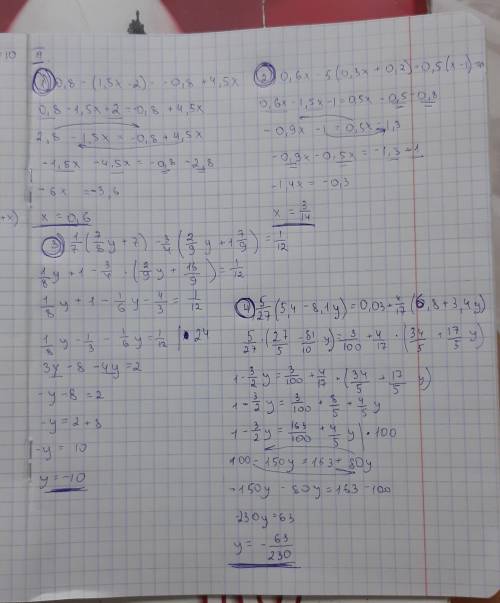 10
А
① 0,8 - (1,5x - 2) = -0,8 + 4,5x
0,8 - 1,5x + 2 = -0,8 + 4,5x
2,8 - 1,5x = -0,8 + 4,5x
-1,5x - 4,5x = -0,8 - 2,8
-6x = -3,6
x = 0,6
+x)
② 0,6x - 5(0,3x + 0,2) = 0,5(x - 1) -
0,6x - 1,5x - 1 = 0,5x - 0,5 - 0,8
-0,9x - 1 = 0,5x - 1,3
-0,9x - 0,5x = -1,3 + 1
-1,4x = -0,3
x = 3/14
③ 1/7 (7/8 y + 7) - 3/4 (2/9 y + 1 7/9) = 1/12
1/8 y + 1 - 3/4 · (2/9 y + 16/9) = 1/12
1/8 y + 1 - 1/6 y - 4/3 = 1/12
1/8 y - 1/3 - 1/6 y = 1/12 | · 24
3y - 8 - 4y = 2
-y - 8 = 2
-y = 2 + 8
-y = 10
y = -10
④ 5/27 (5,4 - 8,1y) = 0,03 + 4/17 (6,8 + 3,4y)
5/27 · (27/5 - 81/10 y) = 3/100 + 4/17 · (34/5 + 17/5 y)
1 - 3/2 y = 3/100 + 4/17 · (34/5 + 17/5 y)
1 - 3/2 y = 3/100 + 8/5 + 4/5 y
1 - 3/2 y = 163/100 + 4/5 y | · 100
100 - 150y = 163 + 80y
-150y - 80y = 163 - 100
-230y = 63
y = - 63/230